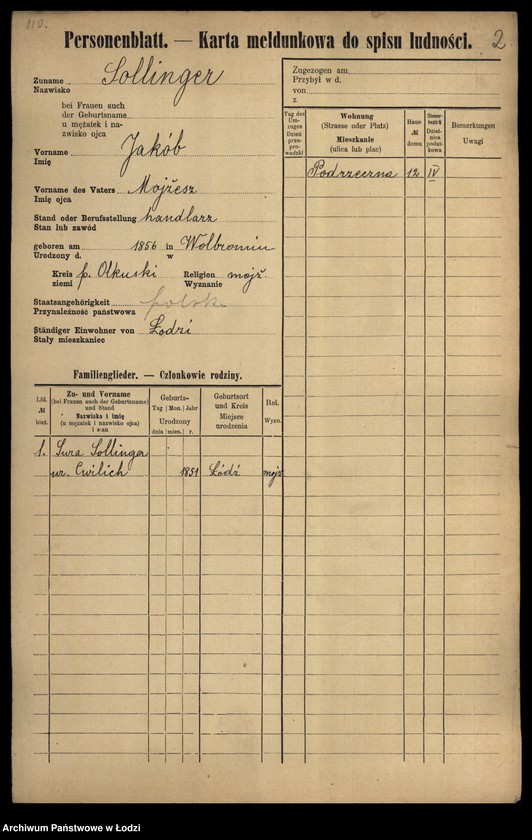 110.
Personenblatt. — Karta meldunkowa do spisu ludności. 2
Zuname Sollinger
Nazwisko
bei Frauen auch
der Geburtsname
u mężatek i na-
zwisko ojca
Vorname Jakób
Imię
Vorname des Vaters Mojżesz
Imię ojca
Stand oder Berufsstellung handlarz
Stan lub zawód
geboren am 1856 in Wolbromiu
Urodzony d. w
Kreis p. Olkuski Religion mojż.
ziemi Wyznanie
Staatsangehörigkeit polska
Przynależność państwowa
Ständiger Einwohner von Łodzi
Stały mieszkaniec
Familienglieder. — Członkowie rodziny.
Lfd. № bież.
Zu- und Vorname
(bei Frauen auch der Geburtsname)
und Stand
Nazwisko i imię
(u mężatek i nazwisko ojca)
i stan
Geburts-
Tag | Mon. | Jahr
Urodzony
dnia | mies. | r.
Geburtsort
und Kreis
Miejsce
urodzenia
Rel.
Wyzn.
1. Sura Sollinger
ur. Cwilich 1851 Łódź mojż
Zugezogen am
Przybył w d.
von
z
Tag des
Um-
zuges
Dzień
prze-
prowadzki
Wohnung
(Strasse oder Platz)
Mieszkanie
(ulica lub plac)
Haus-
№
domu
Steuer-
bezirk
Dziel-
nica
podat-
kowa
Bemerkungen
Uwagi
Podrzeczna 12 IV
Archiwum Państwowe w Łodzi